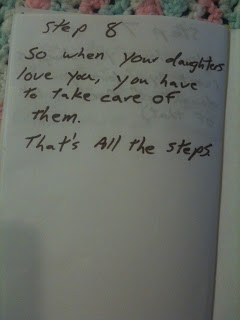 Step 8
So when your daughters
love you, you have
to take care of
them.
That's All the steps.